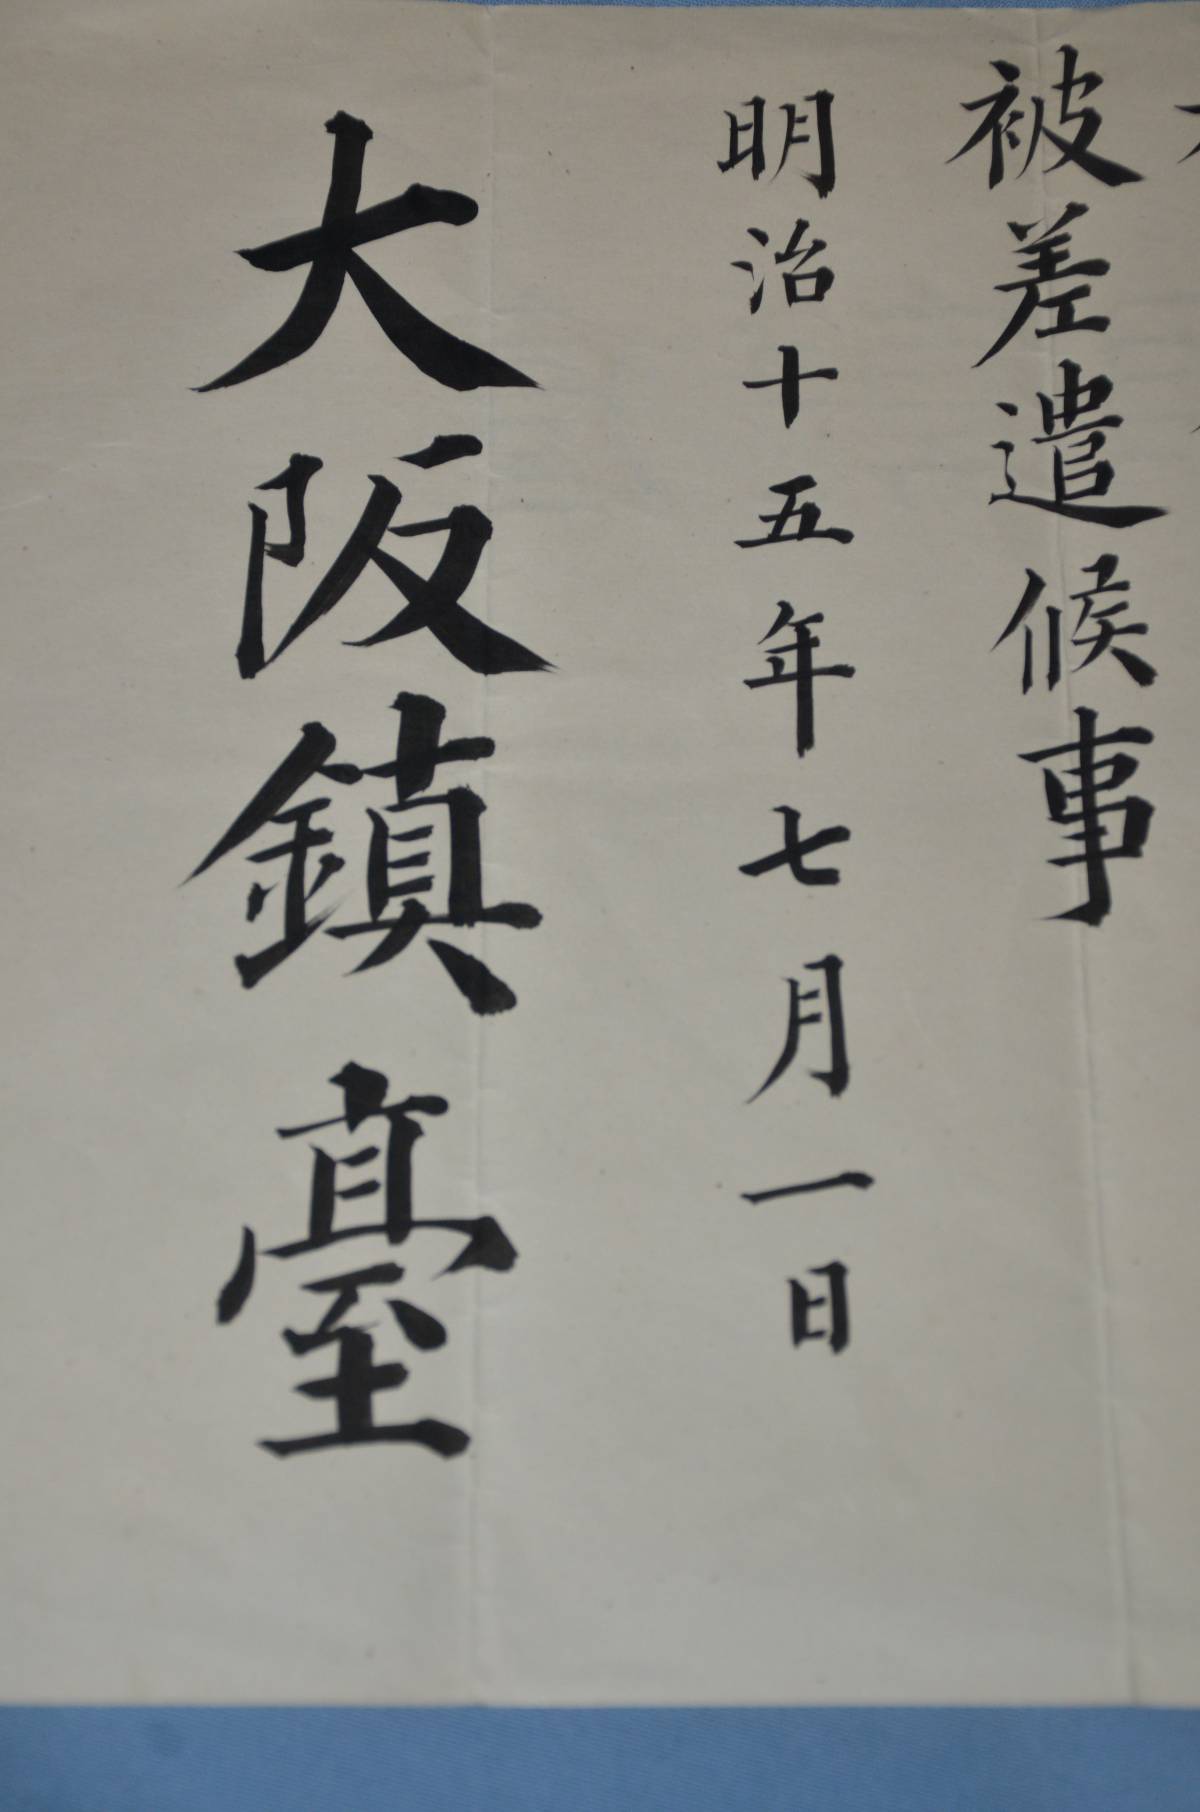 被差遣候事
明治十五年七月一日
大阪鎮臺